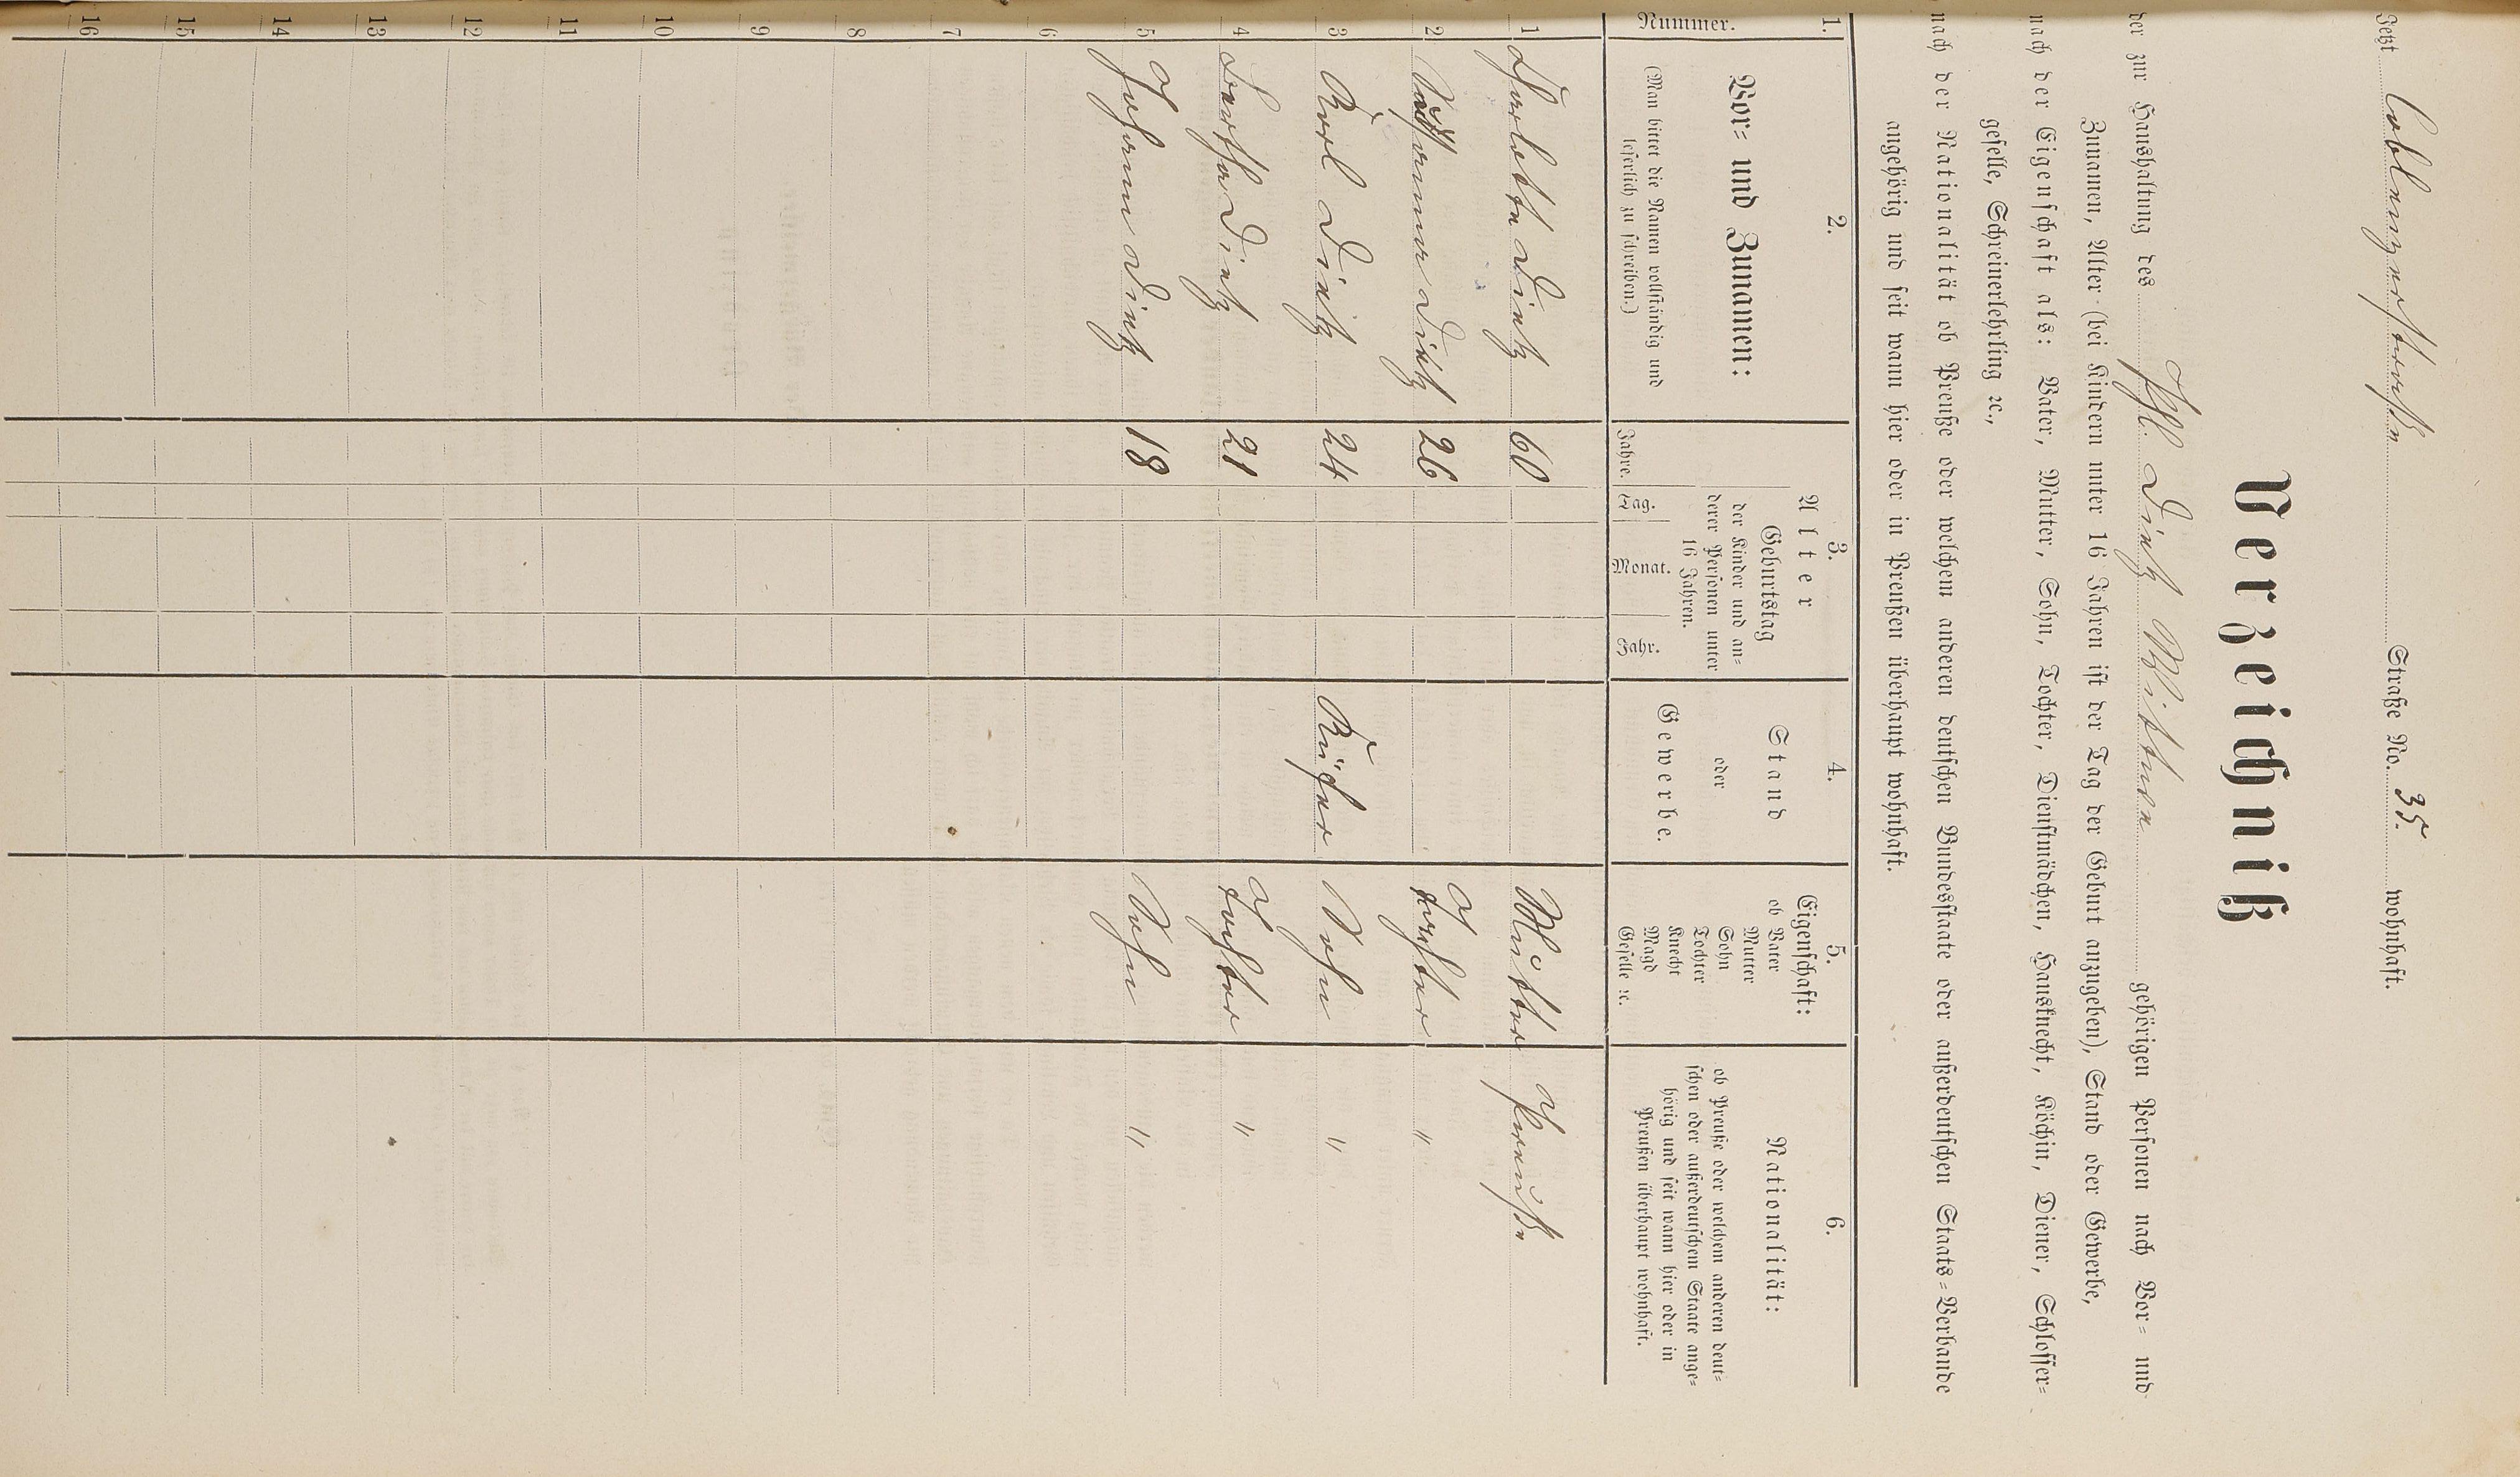 Jetzt Coblenzerstraße Straße No. 35. wohnhaft.
Verzeichniß
der zur Haushaltung des Phl. Dietz Wittwe gehörigen Personen nach Vor- und
Zunamen, Alter (bei Kindern unter 16 Jahren ist der Tag der Geburt anzugeben), Stand oder Gewerbe,
nach der Eigenschaft als: Vater, Mutter, Sohn, Tochter, Dienstmädchen, Hausknecht, Köchin, Diener, Schlosser-
geselle, Schreinerlehrling ꝛc.,
nach der Nationalität ob Preuße oder welchem anderen deutschen Bundesstaate oder außerdeutschen Staats-Verbande
angehörig und seit wann hier oder in Preußen überhaupt wohnhaft.
1. 2. 3. 4. 5. 6.
Nummer.
Vor- und Zunamen:
(Man bittet die Namen vollständig und
leserlich zu schreiben.)
Alter
Geburtstag
der Kinder und an-
derer Personen unter
16 Jahren.
Jahre. Tag. Monat. Jahr.
Stand
oder
Gewerbe.
Eigenschaft:
ob Vater
Mutter
Sohn
Tochter
Knecht
Magd
Geselle ꝛc.
Nationalität:
ob Preuße oder welchem anderen deut-
schen oder außerdeutschem Staate ange-
hörig und seit wann hier oder in
Preußen überhaupt wohnhaft.
1 Charlotte Dietz 60 Mutter Preuße
2 Dietz 26 Tochter "
3 Karl Dietz 24 Küfer Sohn "
4 Bertha Dietz 21 Tochter "
5 Johann Dietz 18 Sohn "
6
7
8
9
10
11
12
13
14
15
16